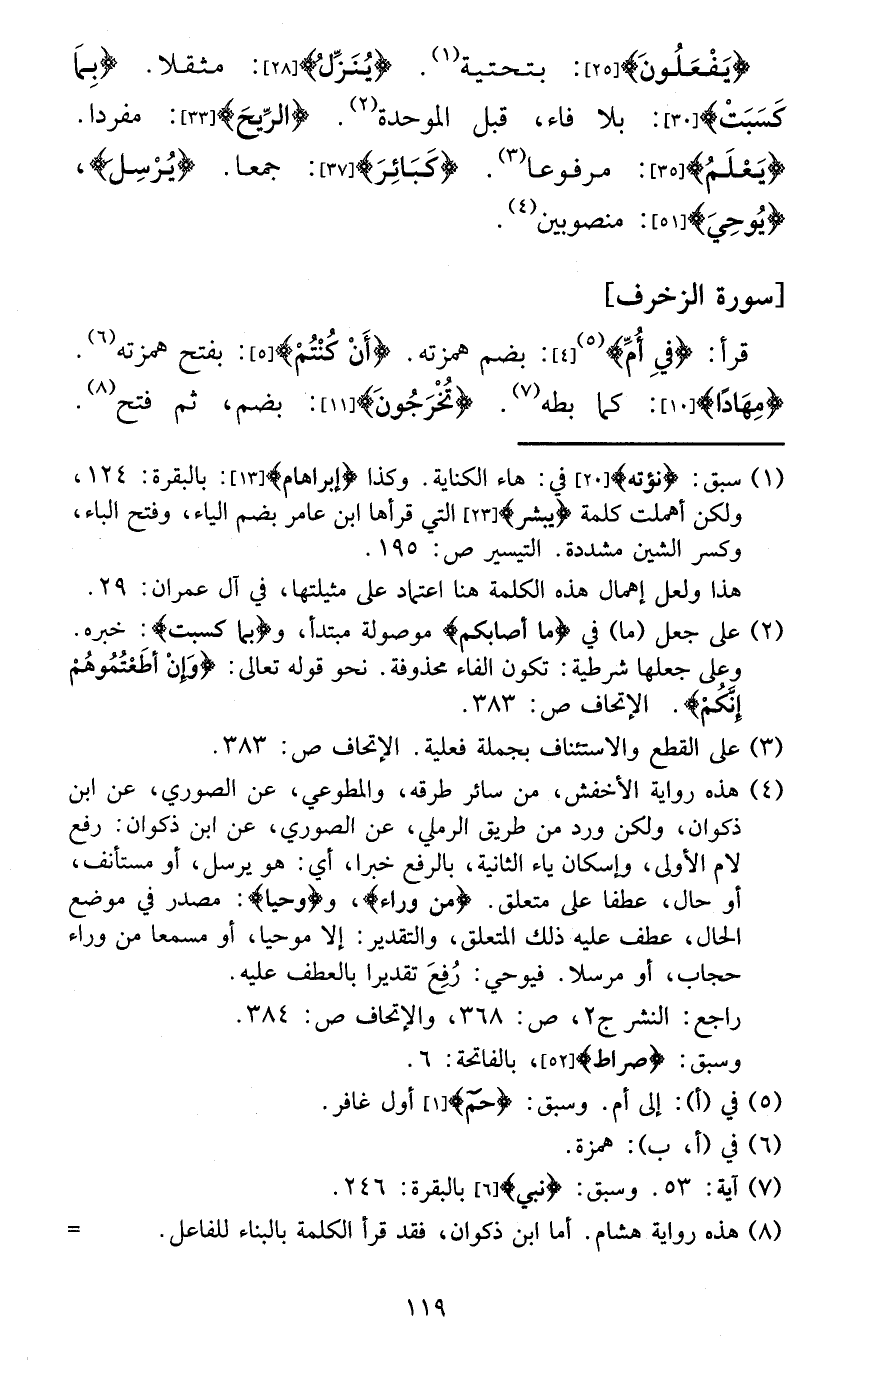 ﴿يَفْعَلُونَ﴾[٢٥]: بتحتية(١). ﴿يُنَزِّلُ﴾[٢٨]: مثقلا. ﴿بِمَا
كَسَبَتْ﴾[٣٠]: بلا فاء، قبل الموحدة(٢). ﴿الرِّيحَ﴾[٣٣]: مفردا.
﴿يَعْلَمُ﴾[٣٥]: مرفوعا(٣). ﴿كَبَائِرَ﴾[٣٧]: جمعا. ﴿يُرْسِلَ﴾،
﴿يُوحِيَ﴾[٥١]: منصوبين(٤).
[سورة الزخرف]
قرأ: ﴿فِي أُمِّ﴾(٥)[٤]: بضم همزته. ﴿أَنْ كُنْتُمْ﴾[٥]: بفتح همزته(٦).
﴿مِهَادًا﴾[١٠]: كما بطه(٧). ﴿تُخْرَجُونَ﴾[١١]: بضم، ثم فتح(٨).
(١) سبق: ﴿نؤته﴾[٢٠] في: هاء الكناية. وكذا ﴿إبراهام﴾[١٣]: بالبقرة: ١٢٤،
ولكن أهملت كلمة ﴿يبشر﴾[٢٣] التي قرأها ابن عامر بضم الياء، وفتح الباء،
وكسر الشين مشددة. التيسير ص: ١٩٥.
هذا ولعل إهمال هذه الكلمة هنا اعتماد على مثيلتها، في آل عمران: ٢٩.
(٢) على جعل (ما) في ﴿ما أصابكم﴾ موصولة مبتدأ، و﴿بما كسبت﴾: خبره.
وعلى جعلها شرطية: تكون الفاء محذوفة. نحو قوله تعالى: ﴿وَإِنْ أَطَعْتُمُوهُمْ
إِنَّكُمْ﴾. الإتحاف ص: ٣٨٣.
(٣) على القطع والاستئناف بجملة فعلية. الإتحاف ص: ٣٨٣.
(٤) هذه رواية الأخفش، من سائر طرقه، والمطوعي، عن الصوري، عن ابن
ذكوان، ولكن ورد من طريق الرملي، عن الصوري، عن ابن ذكوان: رفع
لام الأولى، وإسكان ياء الثانية، بالرفع خبرا، أي: هو يرسل، أو مستأنف،
أو حال، عطفا على متعلق. ﴿من وراء﴾، و﴿وحيا﴾: مصدر في موضع
الحال، عطف عليه ذلك المتعلق، والتقدير: إلا موحيا، أو مسمعا من وراء
حجاب، أو مرسلا. فيوحي: رُفِعَ تقديرا بالعطف عليه.
راجع: النشر ج٢، ص: ٣٦٨، والإتحاف ص: ٣٨٤.
وسبق: ﴿صراط﴾[٥٢]، بالفاتحة: ٦.
(٥) في (أ): إلى أم. وسبق: ﴿حمٓ﴾[١] أول غافر.
(٦) في (أ، ب): همزة.
(٧) آية: ٥٣. وسبق: ﴿نبي﴾[٦] بالبقرة: ٢٤٦.
(٨) هذه رواية هشام. أما ابن ذكوان، فقد قرأ الكلمة بالبناء للفاعل. =
١١٩